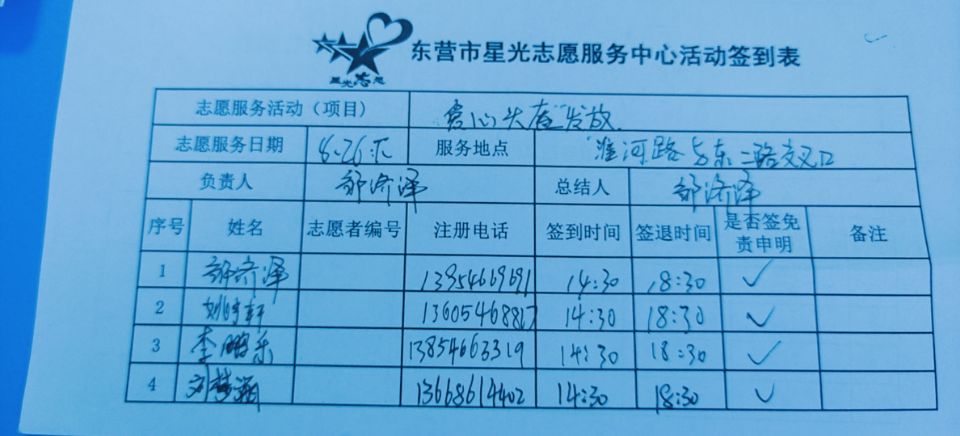 星光志愿
东营市星光志愿服务中心活动签到表
志愿服务活动（项目） 爱心头盔发放
志愿服务日期 8.26 下 服务地点 淮河路与东二路交叉口
负责人 郐济泽 总结人 郐济泽
序号 姓名 志愿者编号 注册电话 签到时间 签退时间 是否签免责申明 备注
1 郐济泽 13954669691 14:30 18:30 ✓
2 姚宇轩 13605468817 14:30 18:30 ✓
3 李鹏乐 13854663319 14:30 18:30 ✓
4 刘梦涵 13668614402 14:30 18:30 ✓